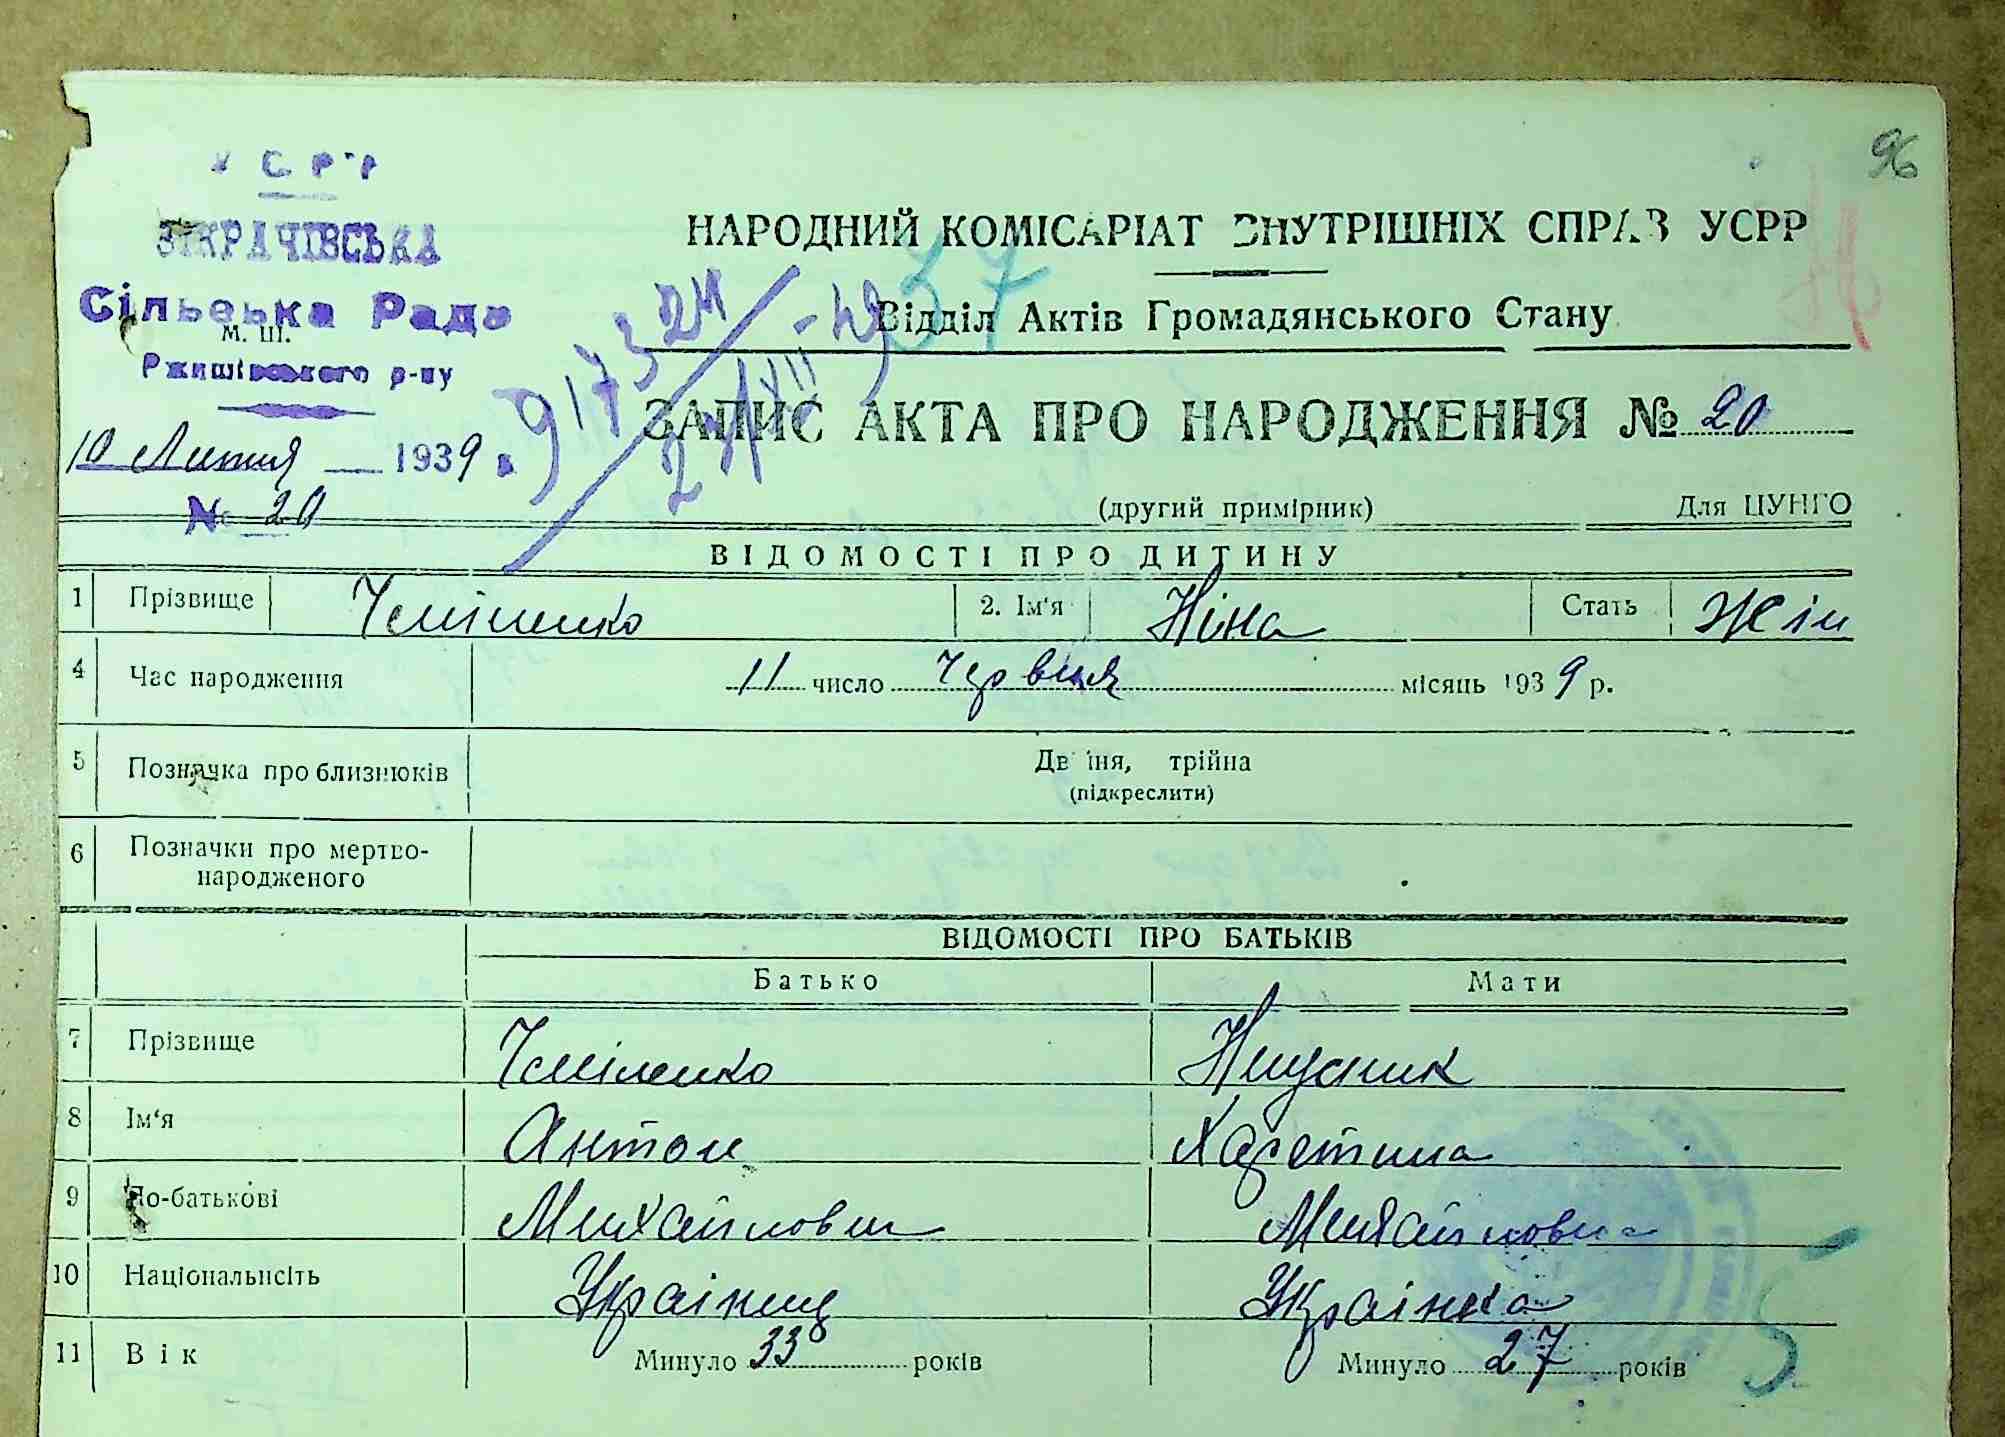 УСРР
ЗІКРАЧІВСЬКА
Сільська Рада
м. ш.
Ржищівського р-ну
10 Липня 1939 р.
№ 20
96
37
НАРОДНИЙ КОМІСАРІАТ ВНУТРІШНІХ СПРАВ УСРР
Відділ Актів Громадянського Стану
917324
ЗАПИС АКТА ПРО НАРОДЖЕННЯ № 20
(другий примірник) Для ЦУНГО
ВІДОМОСТІ ПРО ДИТИНУ
1 Прізвище 2. Ім'я Ніна Стать Жін
4 Час народження 11 число Червня місяць 1939 р.
5 Позначка про близнюків Двійня, трійна
(підкреслити)
6 Позначки про мертво-
народженого
ВІДОМОСТІ ПРО БАТЬКІВ
Батько Мати
7 Прізвище
8 Ім'я Антон Харетина
9 По-батькові Михайлович Михайловна
10 Національнсіть Українец Українка
11 Вік Минуло 33 років Минуло 27 років
5